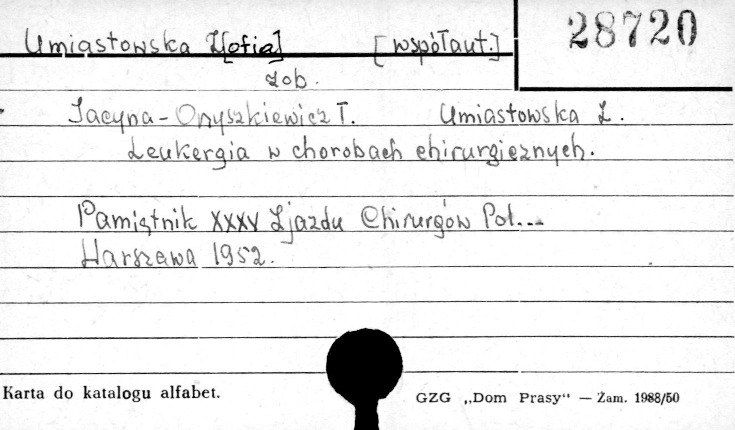 28720
Umiastowska Z[ofia] [współaut.]
zob.
Jacyna-Onyszkiewicz T. Umiastowska Z.
Leukergia w chorobach chirurgicznych.
Pamiętnik XXXV Zjazdu Chirurgów Pol...
Warszawa 1952.
Karta do katalogu alfabet. GZG „Dom Prasy" — Zam. 1988/50